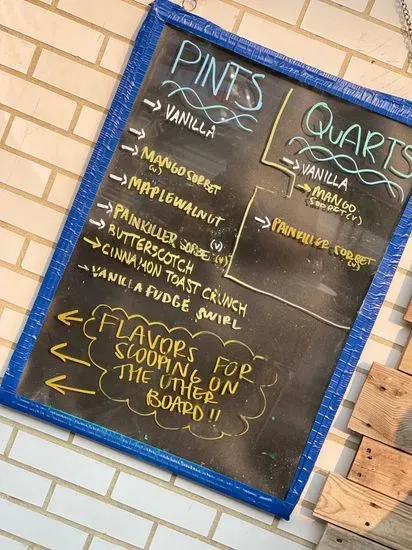 PINTS
→ VANILLA
→
→ MANGO SORBET
(V)
→ MAPLE WALNUT
→ PAINKILLER SORBE (V)
→ BUTTERSCOTCH (V)
→ CINNAMON TOAST CRUNCH
→ VANILLA FUDGE SWIRL
QUARTS
→ VANILLA
→ MANGO
SORBET (V)
→ PAINKILLER SORBET
(V)
FLAVORS FOR
SCOOPING ON
THE OTHER
BOARD!!